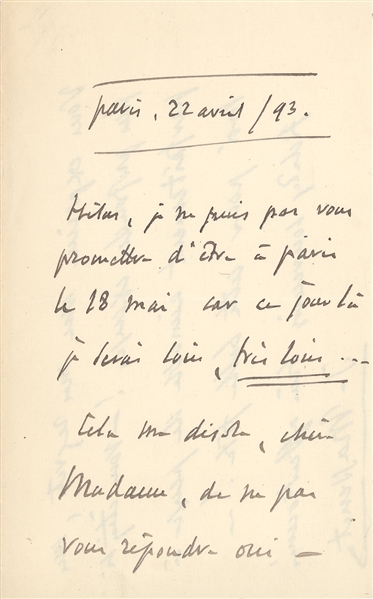 Paris, 22 avril /93.
Hélas, je ne puis pas vous
promettre d'être à Paris
le 18 mai car ce jour là
je serai loin, très loin ...
Cela me désole, chère
Madame, de ne pas
vous répondre oui —